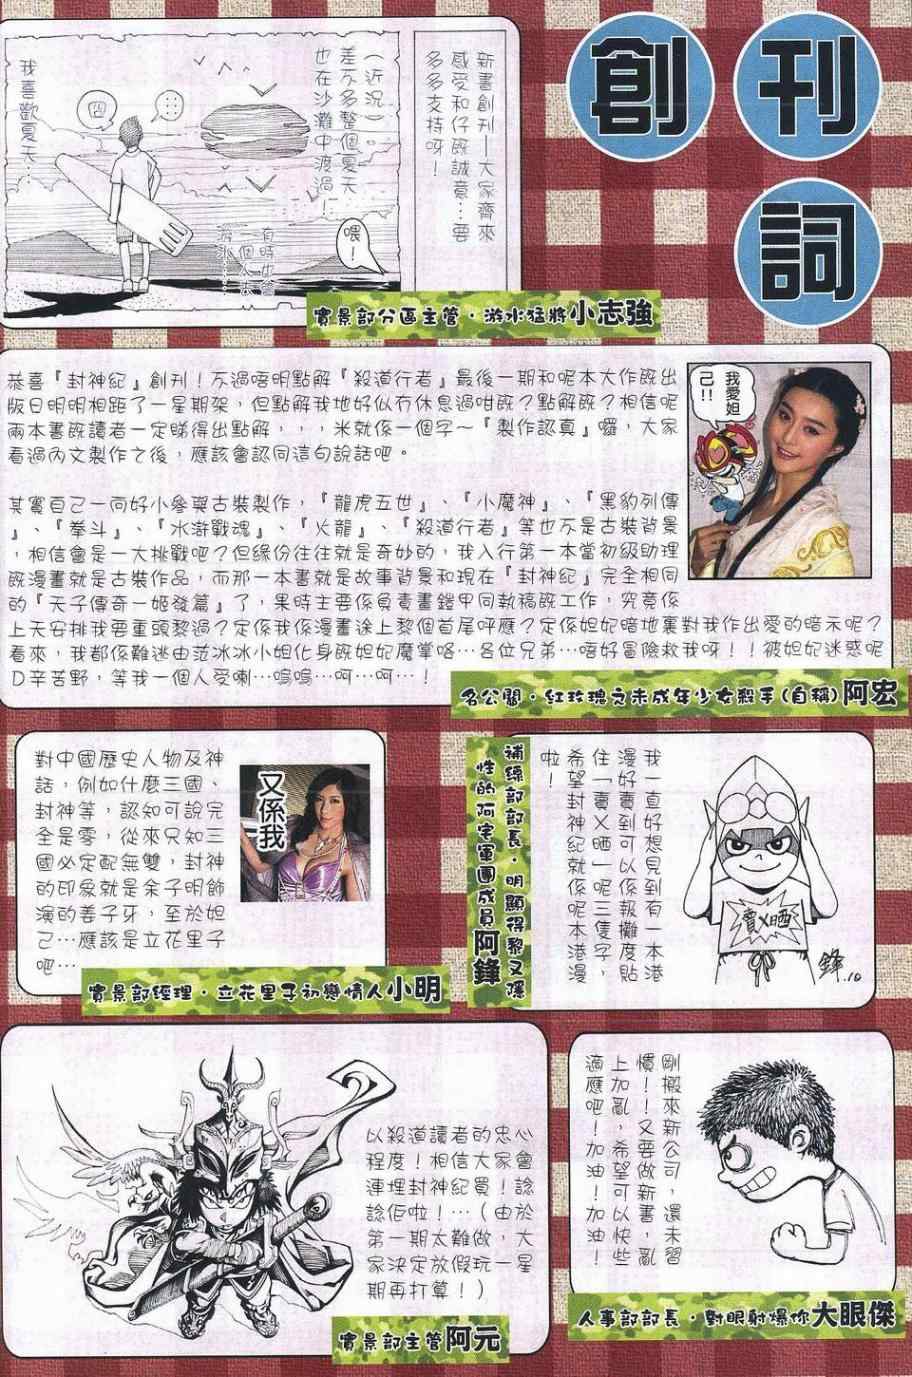 創刊詞
新書創刊—大家齊來
感受和仔既誠意…要
多多支持呀！
（近況）
差不多整個夏天
也在沙灘中渡過！
我喜歡夏天…
囧
喂！
有時也會
一個人去
游水……
實景部分區主管．游水猛將小志強
恭喜『封神紀』創刊！不過唔明點解『殺道行者』最後一期和呢本大作既出
版日明明相距了一星期架，但點解我地好似冇休息過咁既？點解既？相信呢
兩本書既讀者一定睇得出點解，，，米就係一個字～『製作認真』囉，大家
看過內文製作之後，應該會認同這句說話吧。
其實自己一向好小參與古裝製作，『龍虎五世』、『小魔神』、『黑豹列傳
』、『拳斗』、『水滸戰魂』、『火龍』、『殺道行者』等也不是古裝背景
，相信會是一大挑戰吧？但緣份往往就是奇妙的，我入行第一本當初級助理
既漫畫就是古裝作品，而那一本書就是故事背景和現在『封神紀』完全相同
的『天子傳奇—姬發篇』了，果時主要係負責畫鎧甲同執稿既工作，究竟係
上天安排我要重頭黎過？定係我係漫畫途上黎個首尾呼應？定係妲妃暗地裏對我作出愛的暗示呢？
看來，我都係難逃由范冰冰小姐化身既妲妃魔掌咯…各位兄弟…唔好冒險救我呀！！被妲妃迷惑呢
Ｄ辛苦野，等我一個人受喇…嗚嗚…呵…呵…！
我愛妲
己!!
名公關．紅玫瑰文未成年少女殺手(自稱)阿宏
對中國歷史人物及神
話，例如什麼三國、
封神等，認知可說完
全是零，從來只知三
國必定配無雙，封神
的印象就是余子明飾
演的姜子牙，至於妲
己…應該是立花里子
吧…
又係我
實景部經理．立花里子初戀情人小明
我一直好想見到有一本港
漫好賣到可以係報攤度貼
住「賣乂晒」呢三隻字，
希望封神紀就係呢本漫
啦！
賣乂晒
鋒.10
補綠部部長．明顯得黎又隱
性的阿宅軍團成員阿鋒
以殺道讀者的忠心
程度！相信大家會
連埋封神紀買！諗
諗佢啦！…（由於
第一期太難做，大
家決定放假玩一星
期再打算！）
實景部主管阿元
剛搬來新公司，還未習
慣！！又要做新書，亂
上加亂，希望可以快些
適應吧！加油！加油！
人事部部長．對眼射爆你大眼傑